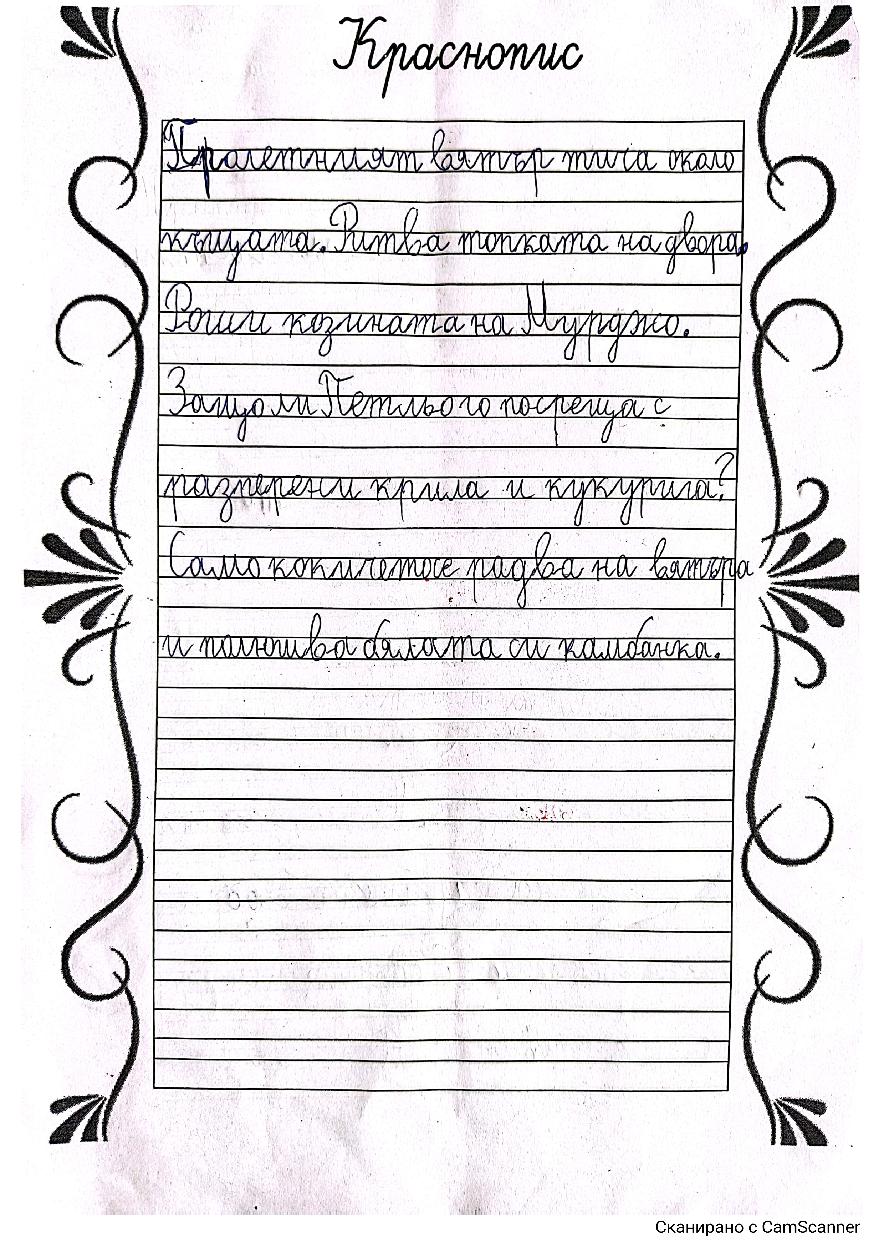 Краснопис
Пролетният вятър тича около
къщата. Ритва топката на двора.
Роши козината на Мурджо.
Защо ли Петльо го посреща с
разперени крила и кукурига?
Само кокичето се радва на вятъра
и полюшва бялата си камбанка.
Сканирано с CamScanner